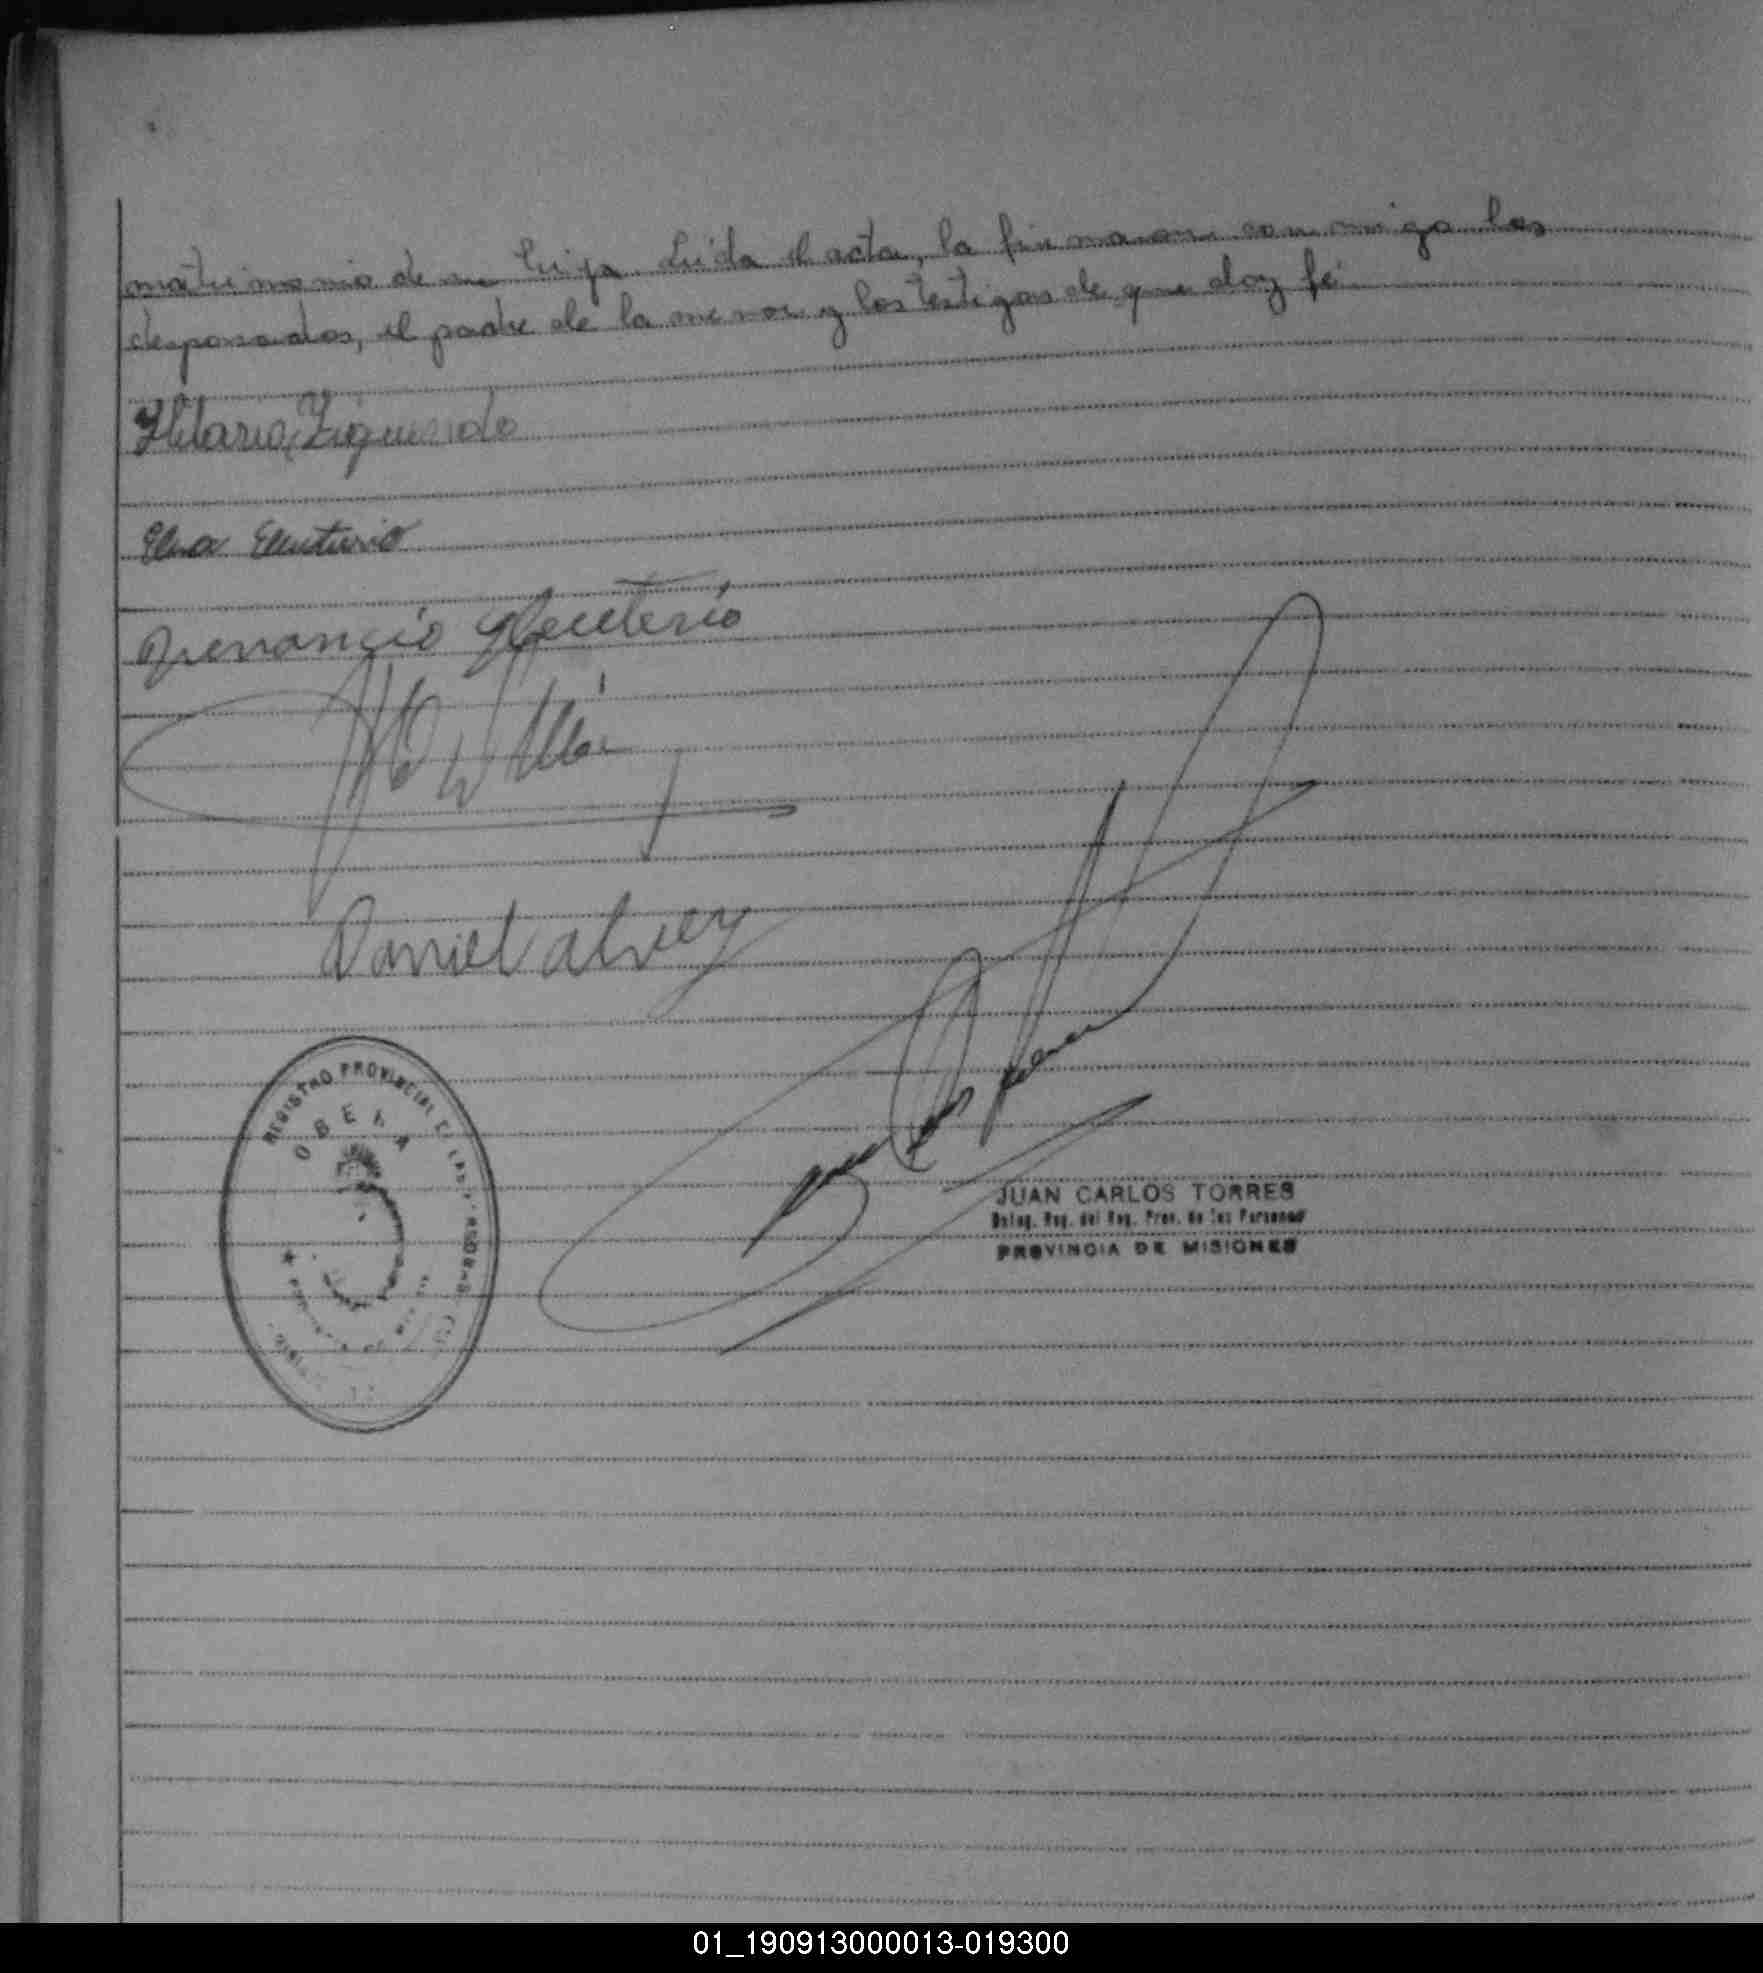 matrimonio de su hija. Leida el acta, la firmaron conmigo los
desposados, el padre de la menor y los testigos de que doy fé
Hilario
Elena Eleuterio
Venancio Eleuterio
Daniel alvez
REGISTRO PROVINCIAL DE LAS PERSONAS
OBERA
JUAN CARLOS TORRES
Deleg. Reg. del Reg. Prov. de las Personas
PROVINCIA DE MISIONES
01_190913000013-019300